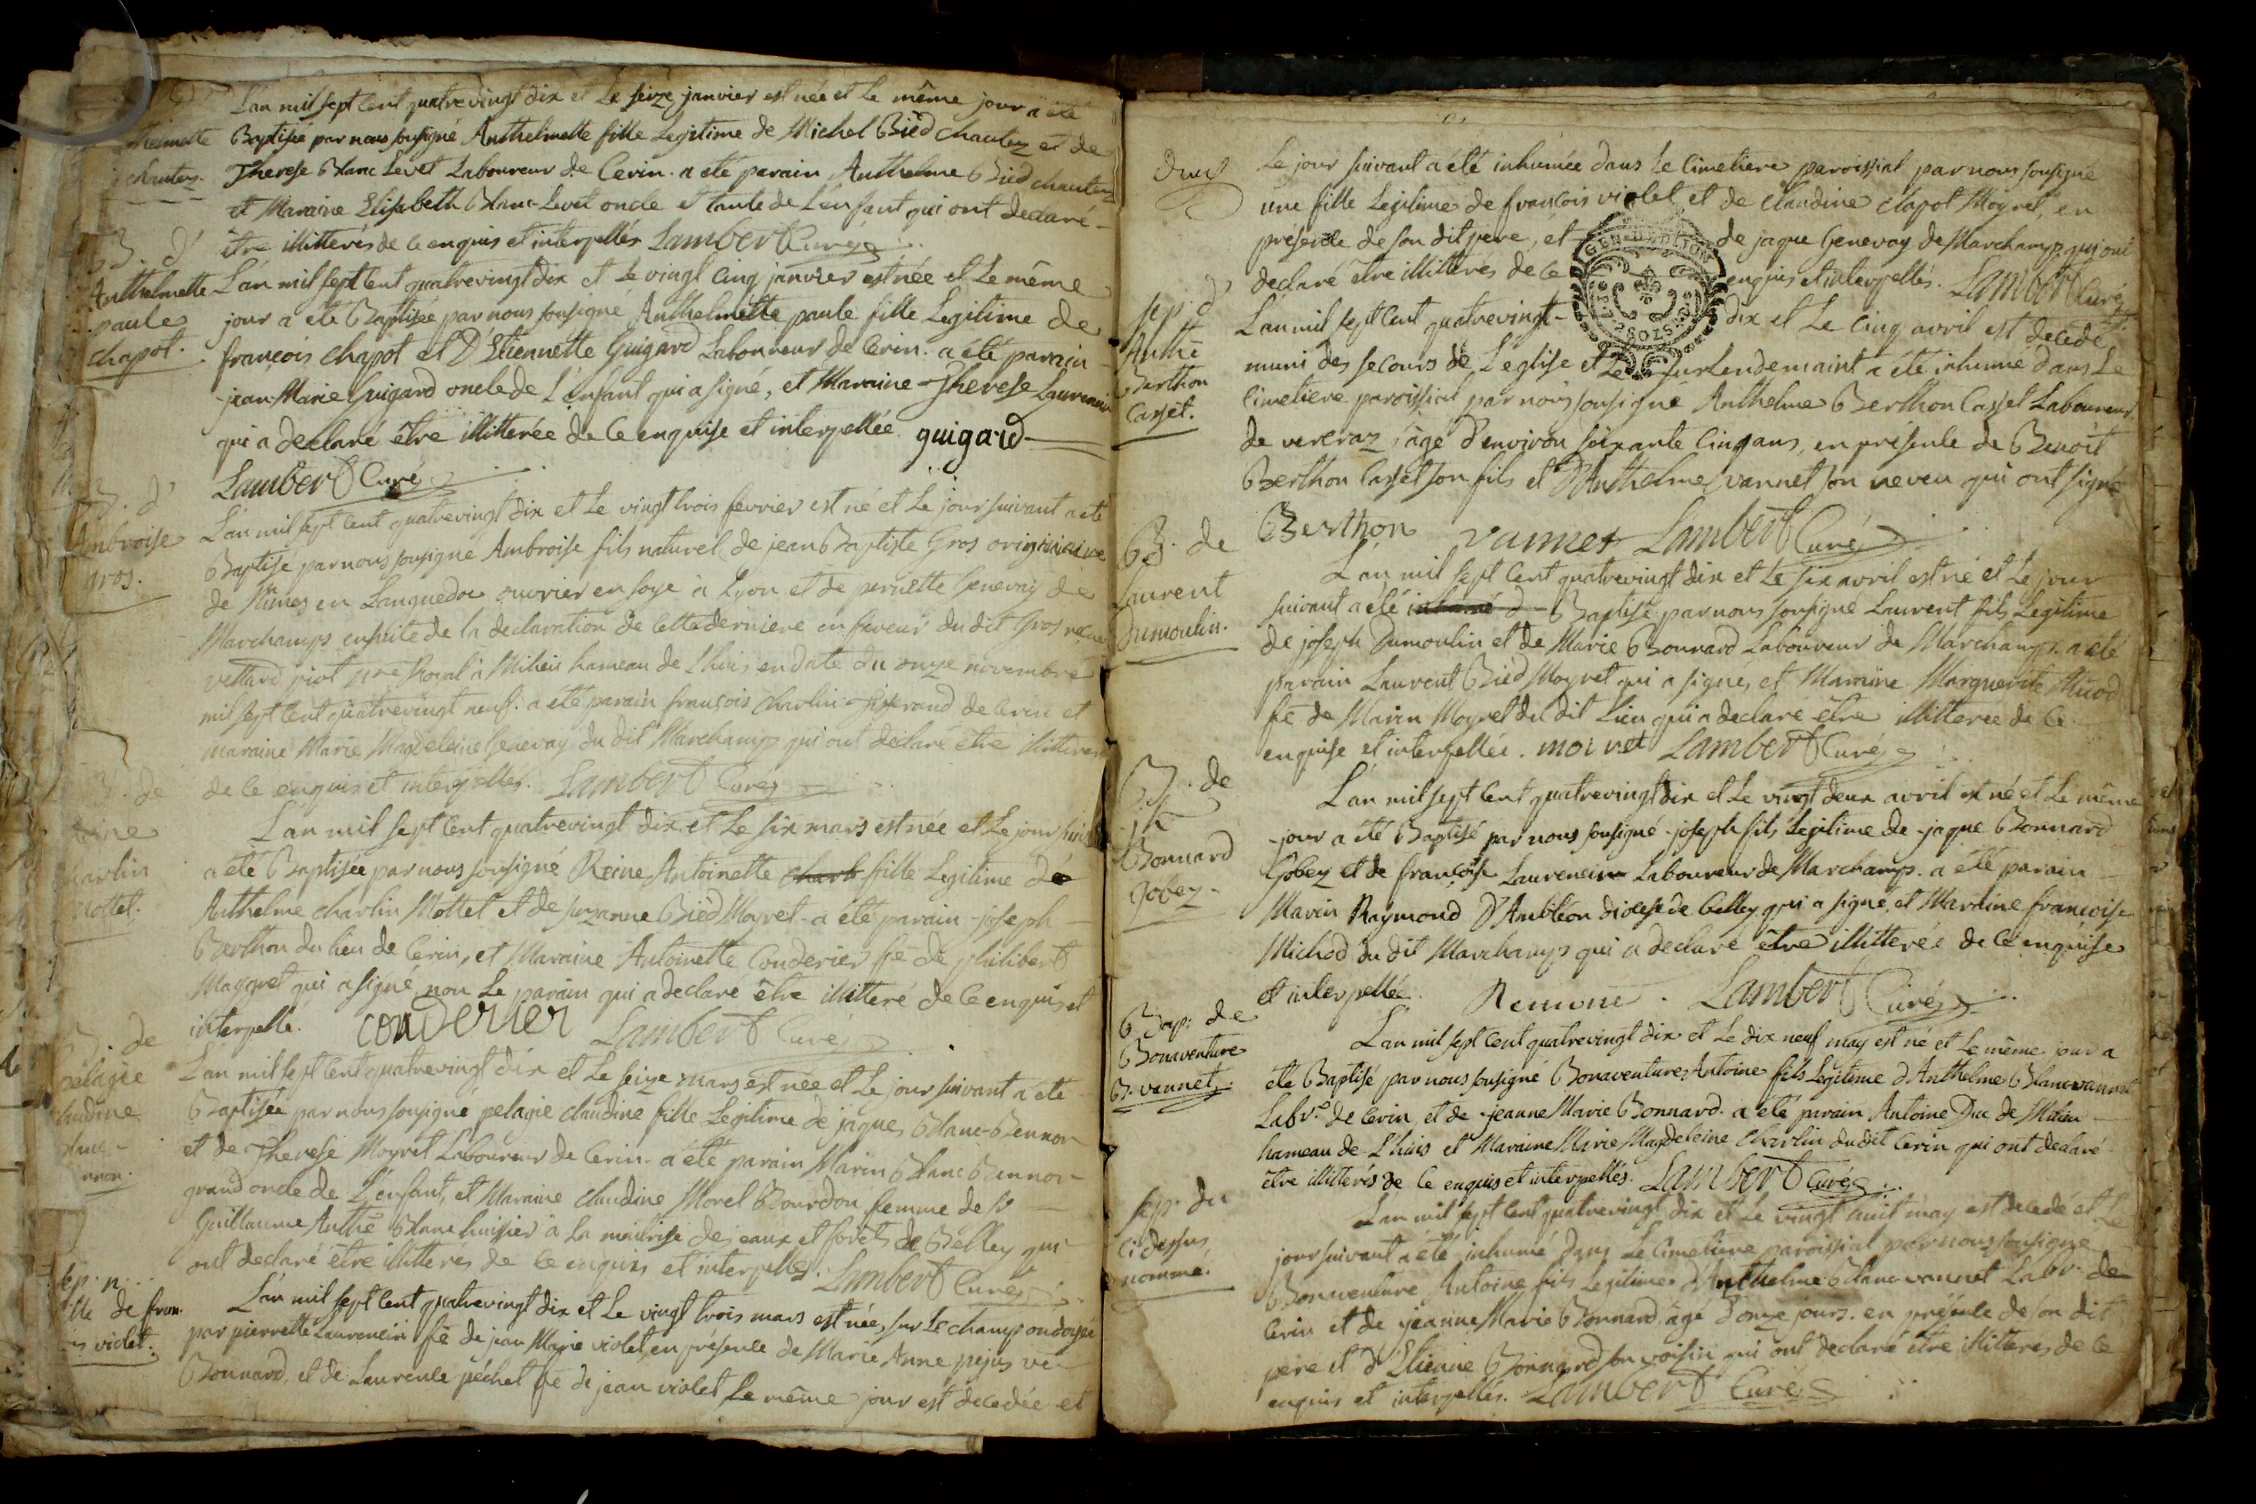 L'an mil sept Cent quatrevingt dix et Le seize janvier est née et Le même jour a été
Baptisée par nous sousigné Anthelmette fille Legitime de Michel Bied chautez et de
chautez.
Therese Blanc Levet Laboureur de Cerin. a été parain Anthelme Bied chautez
et Maraine Elisabeth Blanc-Levet oncle et tante de L'enfant qui ont declaré
être illitterés de ce enquis et interpellés Lambert Curé
B. d'
Anthelmette
paule
chapot.
L'an mil sept Cent quatrevingt dix et Le vingt Cinq janvier est née et Le même
jour a été Baptisée par nous sousigné Anthelmette paule fille Legitime de
françois chapot et D'Etiennette Guigard Laboureur de Cerin. a été parain
jean-Marie Guigard oncle de L'enfant qui a signé, et Maraine Therese Laurencin
qui a declaré être illitterée de Ce enquise et interpellée. guigard
Lambert Curé
B. d'
Ambroise
Gros.
L'an mil sept Cent quatrevingt dix et Le vingt trois fevrier est né et Le jour suivant a été
Baptisé par nous sousigné Ambroise fils naturel de jean Baptiste Gros originaire
de Nimes en Languedoc ouvrier en soye à Lyon et de pernette Genevay de
Marchamps ensuite de la declaration de Cette derniere en faveur du dit Gros
vettard piot Royal à Milieu hameau de L'huis en date du onze novembre
mil sept Cent quatrevingt neuf. a été parain françois Charlin Tisserand de Cerin et
maraine Marie Magdeleine Genevay du dit Marchamps qui ont declaré être illitterés
de Ce enquis et interpellés. Lambert Curé
B. de
Mottet.
L'an mil sept Cent quatrevingt dix et Le six mars est née et Le jour suivant
a été Baptisée par nous sousigné Reine Antoinette charb fille Legitime de
Anthelme charlin Mottet et de suzanne Bied Moyret. a été parain joseph
Berthon du lieu de Cerin, et Maraine Antoinette Couderier fe de philibert
Magnet qui a signé non Le parain qui a declaré être illitteré de Ce enquis et
interpellé. couderier Lambert Curé
B. de
pelagie
Claudine
L'an mil sept Cent quatrevingt dix et Le seize mars est née et Le jour suivant a été
Baptisée par nous sousigné pelagie claudine fille Legitime de jaques Blanc-Bennon
et de Therese Moyret Laboureur de Cerin. a été parain Marin Blanc Bennon
grand oncle de L'enfant, et Maraine claudine Morel Bourdon femme de Sr
Guillaume Anthe Blanc huissier à La maitrise des eaux et forêts de Belley qui
ont declaré être illitterés de Ce enquis et interpellés. Lambert Curé
sep. n
fille de fran.
violet.
L'an mil sept Cent quatrevingt dix et Le vingt trois mars est née, sur Le champ ondoyée
par pierrette Laurencin fe de jean Marie violet, en présence de Marie Anne pejus ve
Bonnard, et de Laurence péchet fe de jean violet Le même jour est decedée et
Le jour suivant a été inhumée dans Le Cimetiere paroissial par nous sousigné
une fille Legitime de françois violet et de Claudine chapot Moyret, en
présence de son dit pere, et de jaque Genevay de Marchamps qui ont
declaré être illitterés de Ce enquis et interpellés. Lambert Curé
GEN. DE LYON
DEUX SOLS
sep. d'
Anthe
Berthon
Casset.
L'an mil sept Cent quatrevingt-dix et Le Cinq avril est decedé
muni des secours de L'eglise et Le surlendemaint a été inhumé dans Le
Cimetiere paroissial par nous sousigné Anthelme Berthon Casset Laboureur
de vercraz agé d'environ soixante Cinq ans, en présence de Benoît
Berthon Casset son fils et D'Anthelme vannet son neveu qui ont signé
Berthon vannet Lambert Curé
B. de
Laurent
Dumoulin.
L'an mil sept Cent quatrevingt dix et Le six avril est né et Le jour
suivant a été inhumé d Baptisé par nous sousigné Laurent fils Legitime
de joseph Dumoulin et de Marie Bonnard Laboureur de Marchamps. a été
parain Laurent Bied Moyret qui a signé, et Maraine Marguerite Miod
fe de Marin Moyret du dit Lieu qui a declaré être illitterée de Ce
enquise et interpellée. moiret Lambert Curé
B. de
jh
Bonnard
Gobey.
L'an mil sept Cent quatrevingt dix et Le vingt deux avril est né et Le même
jour a été Baptisé par nous sousigné joseph fils Legitime de jaque Bonnard
Gobey et de françoise Laurencin Laboureur de Marchamps. a été parain
Marin Raymond D'Ambléon diocese de Belley qui a signé, et Maraine françoise
Michod du dit Marchamps qui a declaré être illitterée de Ce enquise
et interpellée. Remone. Lambert Curé
Bap. de
Bonaventure
B. vannet.
L'an mil sept Cent quatrevingt dix et Le dix neuf may est né et Le même jour a
été Baptisé par nous sousigné Bonaventure Antoine fils Legitime d'Anthelme Blanc vannet
Labr. de Cerin, et de jeanne Marie Bonnard. a été parain Antoine Duc de Milieu
hameau de L'huis et Maraine Marie Magdeleine Charlin dudit Cerin qui ont declaré
être illitterés de Ce enquis et interpellés. Lambert Curé
sep. du
Ci dessus
nommé.
L'an mil sept Cent quatrevingt dix et Le vingt huit may est decedé et Le
jour suivant a été inhumé dans Le Cimetiere paroissial par nous sousigné
Bonaventure Antoine fils Legitime D'Anthelme Blanc vannet Labr. de
Cerin et de jeanne Marie Bonnard agé d'onze jours. en présence de son dit
pere et d'Etienne Bonnard son voisin qui ont declaré être illitterés de Ce
enquis et interpellés. Lambert Curé